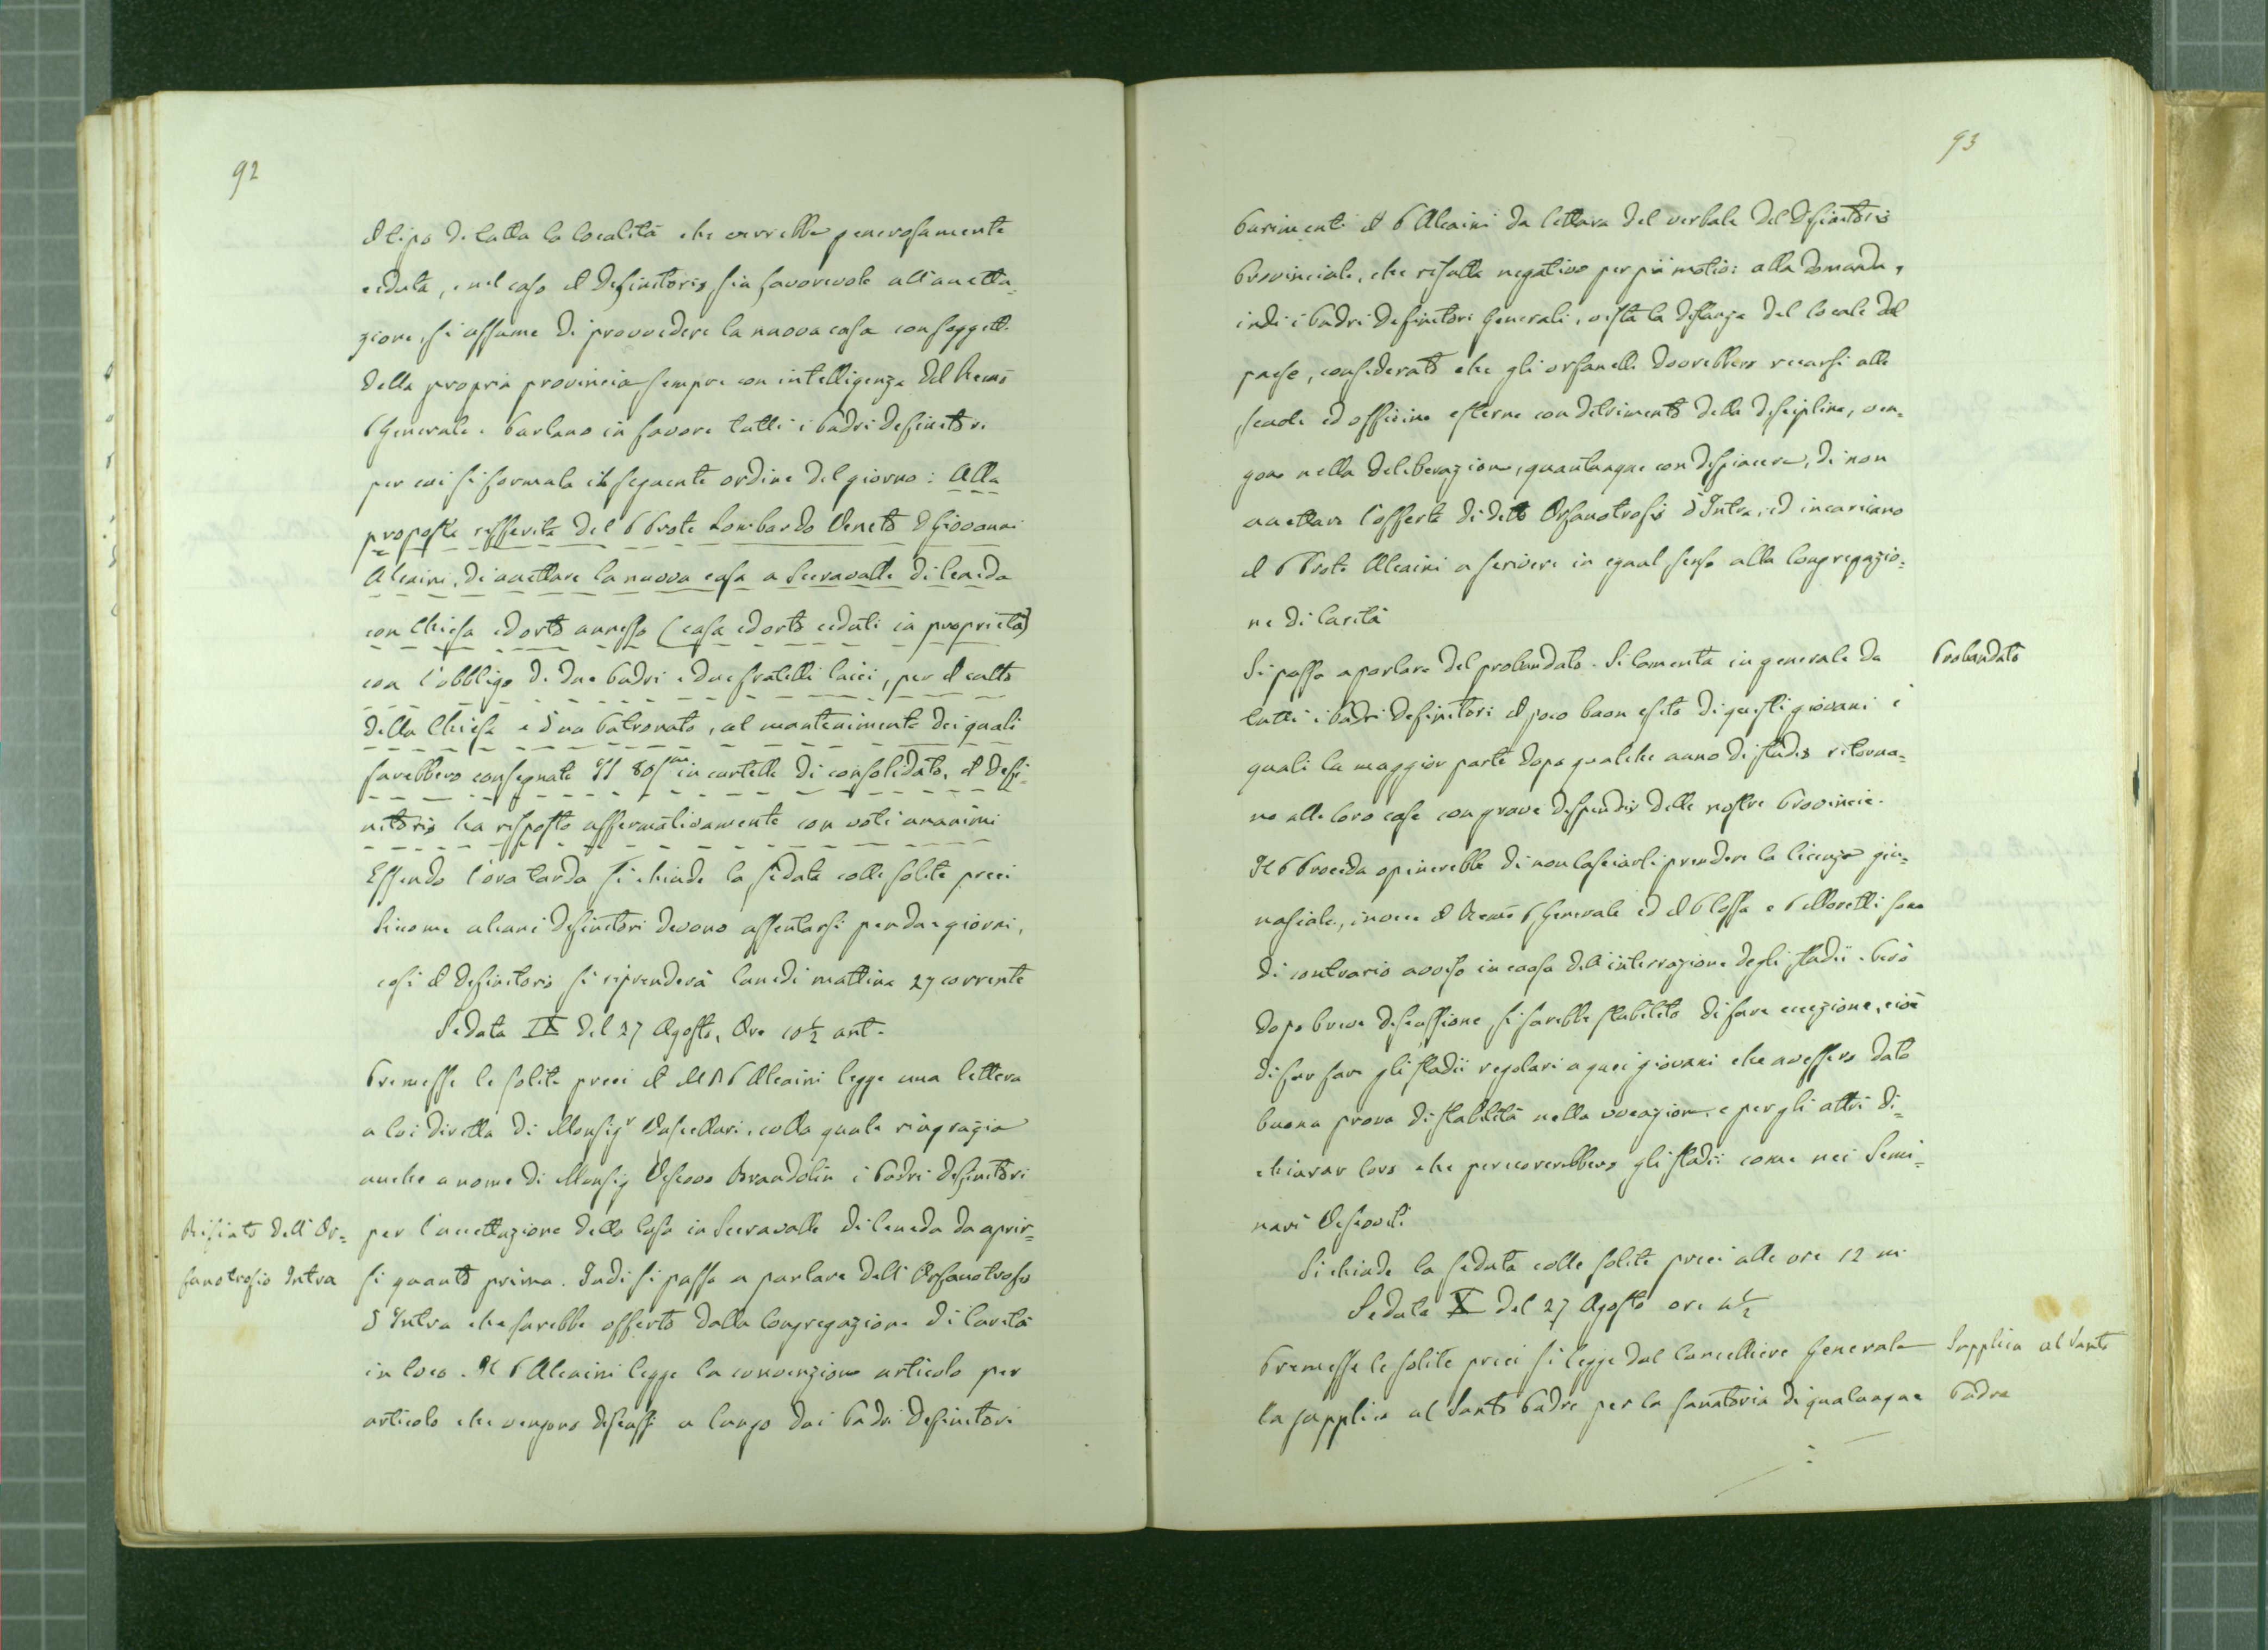 92
il tipo di tutta la località che verrebbe generosamente
ceduta, e nel caso il Definitorio sia favorevole all'accetta=
zione, si assume di provvedere la nuova casa con soggetti
della propria provincia sempre con intelligenza del Revmo
P Generale. Parlano in favore tutti i Padri Definitori
per cui si formula il seguente ordine del giorno: Alla
proposta rifferita del P Prov.le Lombardo Veneto D Giovanni
Alcaini, di accettare la nuova casa a Serravalle di Ceneda
con Chiesa ed orto annesso (casa ed orto ceduti in proprietà)
con l'obbligo di due Padri e due fratelli laici, per il culto
della Chiesa e d'un Patronato, al mantenimento dei quali
sarebbero consegnate in cartelle di consolidato, il Defi=
nitorio ha risposto affermativamente con voti unanimi
Essendo l'ora tarda si chiude la seduta colle solite preci
Siccome alcuni Definitori devono assentarsi per due giorni,
così il Definitorio si riprenderà lunedi mattina 27 corrente
Seduta IX del 27 Agosto, Ore 10 ½ ant.
Premesse le solite preci il M R P Alcaini legge una lettera
a lui diretta di Monsigr Vascellari, colla quale ringrazia
anche a nome di Monsig Vescovo Brandolin i Padri Definitori
Rifiuto dell'Or=
fanotrofio Intra
per l'accettazione della Casa in Serravalle di Ceneda da aprir=
si quanto prima. Indi si passa a parlare dell'Orfanotrofio
d'Intra che sarebbe offerto dalla Congregazione di Carità
in loco. Il P Alcaini legge la convenzione articolo per
articolo che vengono discussi a lungo dai Padri Definitori
93
Parimenti il P Alcaini da lettura del verbale del Definitorio
Provinciale, che risulta negativo per più motivi alla domanda,
indi i Padri Definitori Generali, vista la distanza del locale dal
paese, considerato che gli orfanelli dovrebbero recarsi alle
scuole ed officine esterne con detrimento della disciplina, ven=
gono nella deliberazione, quantunque con dispiacere, di non
accettare l'offerta di detto Orfanotrofio d'Intra, ed incaricano
il P Prov.le Alcaini a scrivere in egual senso alla Congregazio=
ne di Carità
Probandato
Si passa a parlare del probandato. Si lamenta in generale da
tutti i Padri Definitori il poco buon esito di questi giovani i
quali la maggior parte dopo qualche anno di studio ritorna=
no alle loro case con grave dispendio delle nostre Provincie.
Il P Procida opinerebbe di non lasciarli prendere la licenza gin=
nasiale, invece il Revmo P Generale ed il P Cossa e P Moretti sono
di contrario avviso in causa dell'interruzione degli studii. Però
dopo breve discussione si sarebbe stabilito di fare eccezione, cioè
di far fare gli studii regolari a quei giovani che avessero dato
buona prova di stabilità nella vocazione e per gli altri di=
chiarar loro che percorrerebbero gli studii come nei Semi=
nari Vescovili
Si chiude la seduta colle solite preci alle ore 12 m
Seduta X del 27 Agosto ore ½
Supplica al Santo
Padre
Premesse le solite preci si legge dal Cancelliere Generale
la supplica al Santo Padre per la sanatoria di qualunque